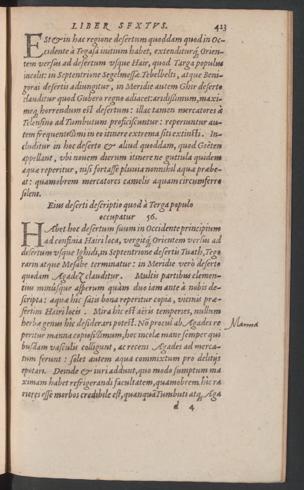 LIBER SEXTVS. 423
ESt & in hac regione desertum quoddam quod in Oc-
cidente à Tegasa initium habet, extenditurq́ Orien-
tem versus ad desertum vsque Hair, quod Targa populus
incolit: in Septentrione Segelmessæ Tebelbelti, atque Beni
gorai desertis adiungitur, in Meridie autem Ghir deserto
clauditur quod Gubero regno adiacet: aridissimum, maxi-
meq́; horrendum est desertum: illac tamen mercatores à
Telensino ad Tumbutum proficiscuntur: reperiuntur au-
tem frequentissimi in eo itinere extrema siti extincti. In-
cluditur in hoc deserto & aliud quoddam, quod Gotêen
appellant, vbi nouem dierum itinere ne guttula quidem
aquæ reperitur, nisi fortasse pluuia nonnihil aqua præbe-
at: quamobrem mercatores camelis aquam circumferre
solent.
Eius deserti descriptio quod à Terga populo
occupatur 56.
HAbet hoc desertum suum in Occidente principium
ad confinia Hairi loca, vergitq́; Orientem versus ad
desertum vsque Ighidi, in Septentrione desertis Tuath, Tego
rarin atque Mesabe terminatur: in Meridie verò deserto
quodam Agadez clauditur. Multis partibus clemen-
tius minùsque asperum quàm duo iam ante à nobis de-
scripta: aquæ hîc satis bona reperitur copia, vicinis præ-
sertim Hairi locis. Mira hîc est aëris temperies, nullum
herbæ genus hîc desiderari potest. Nō procul ab Agades re
peritur manna copiosissimum, hoc incolæ mane semper quî
busdam vasculis colligunt, ac recens Agades ad merca-
tum ferunt: solet autem aqua commixtum pro delitijs
epotari. Deinde & iuri addunt, quo modo sumptum ma
ximam habet refrigerandi facultatem, quamobrem hîc ra
riores esse morbos credibile est, quanquā Tumbuti atq́; Aga
d 4
Manna